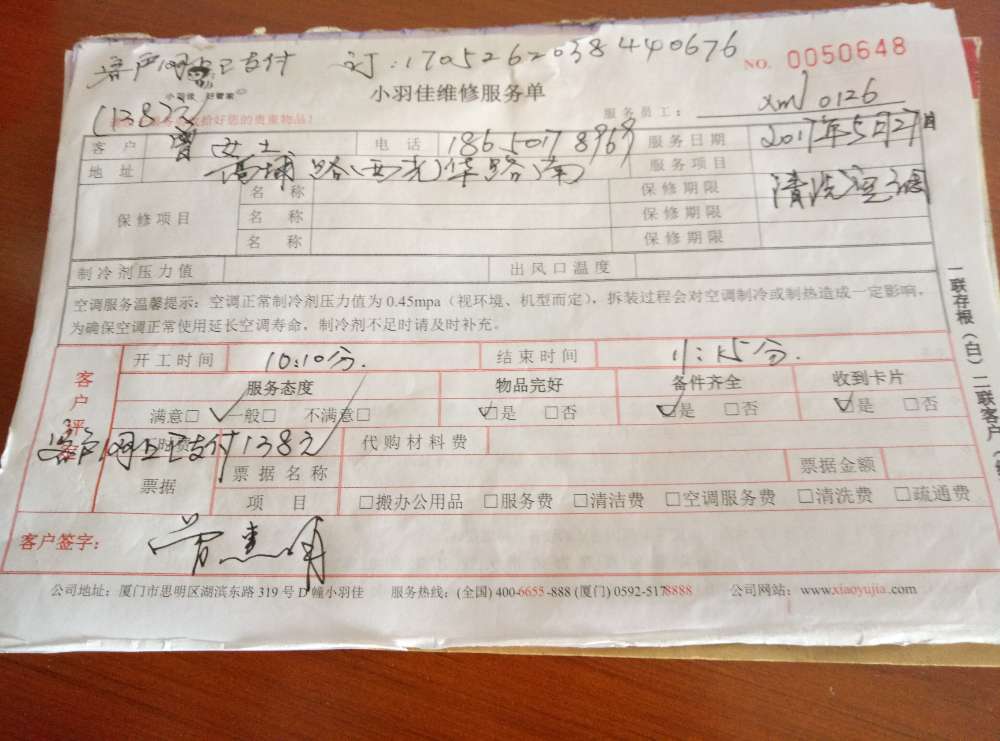 客户网上已支付 订:1705262038440676
NO. 0050648
小羽佳 好管家
小羽佳维修服务单
服务员工: xm 0126
(138元) 给好您的贵重物品!
客户 曾女士 电话 18650178969 服务日期 2017年5月27日
地址 路(西光华路南 服务项目 清洗空调
保修项目 名称 保修期限
名称 保修期限
名称 保修期限
制冷剂压力值 出风口温度
空调服务温馨提示:空调正常制冷剂压力值为 0.45mpa(视环境、机型而定),拆装过程会对空调制冷或制热造成一定影响,
为确保空调正常使用延长空调寿命,制冷剂不足时请及时补充。
一联存根(白)二联客户
客户评
开工时间 10:10分. 结束时间 11:15分.
服务态度 物品完好 备件齐全 收到卡片
满意□ ✓一般□ 不满意□ ☑是 □否 ☑是 □否 ☑是 □否
客户网上已支付138元 代购材料费
票据 票据名称 票据金额
项目 □搬办公用品 □服务费 □清洁费 □空调服务费 □清洗费 □疏通费
客户签字:
公司地址:厦门市思明区湖滨东路 319 号 D 幢小羽佳 服务热线:(全国) 400-6655-888 (厦门) 0592-5178888 公司网站:www.xiaoyujia.com